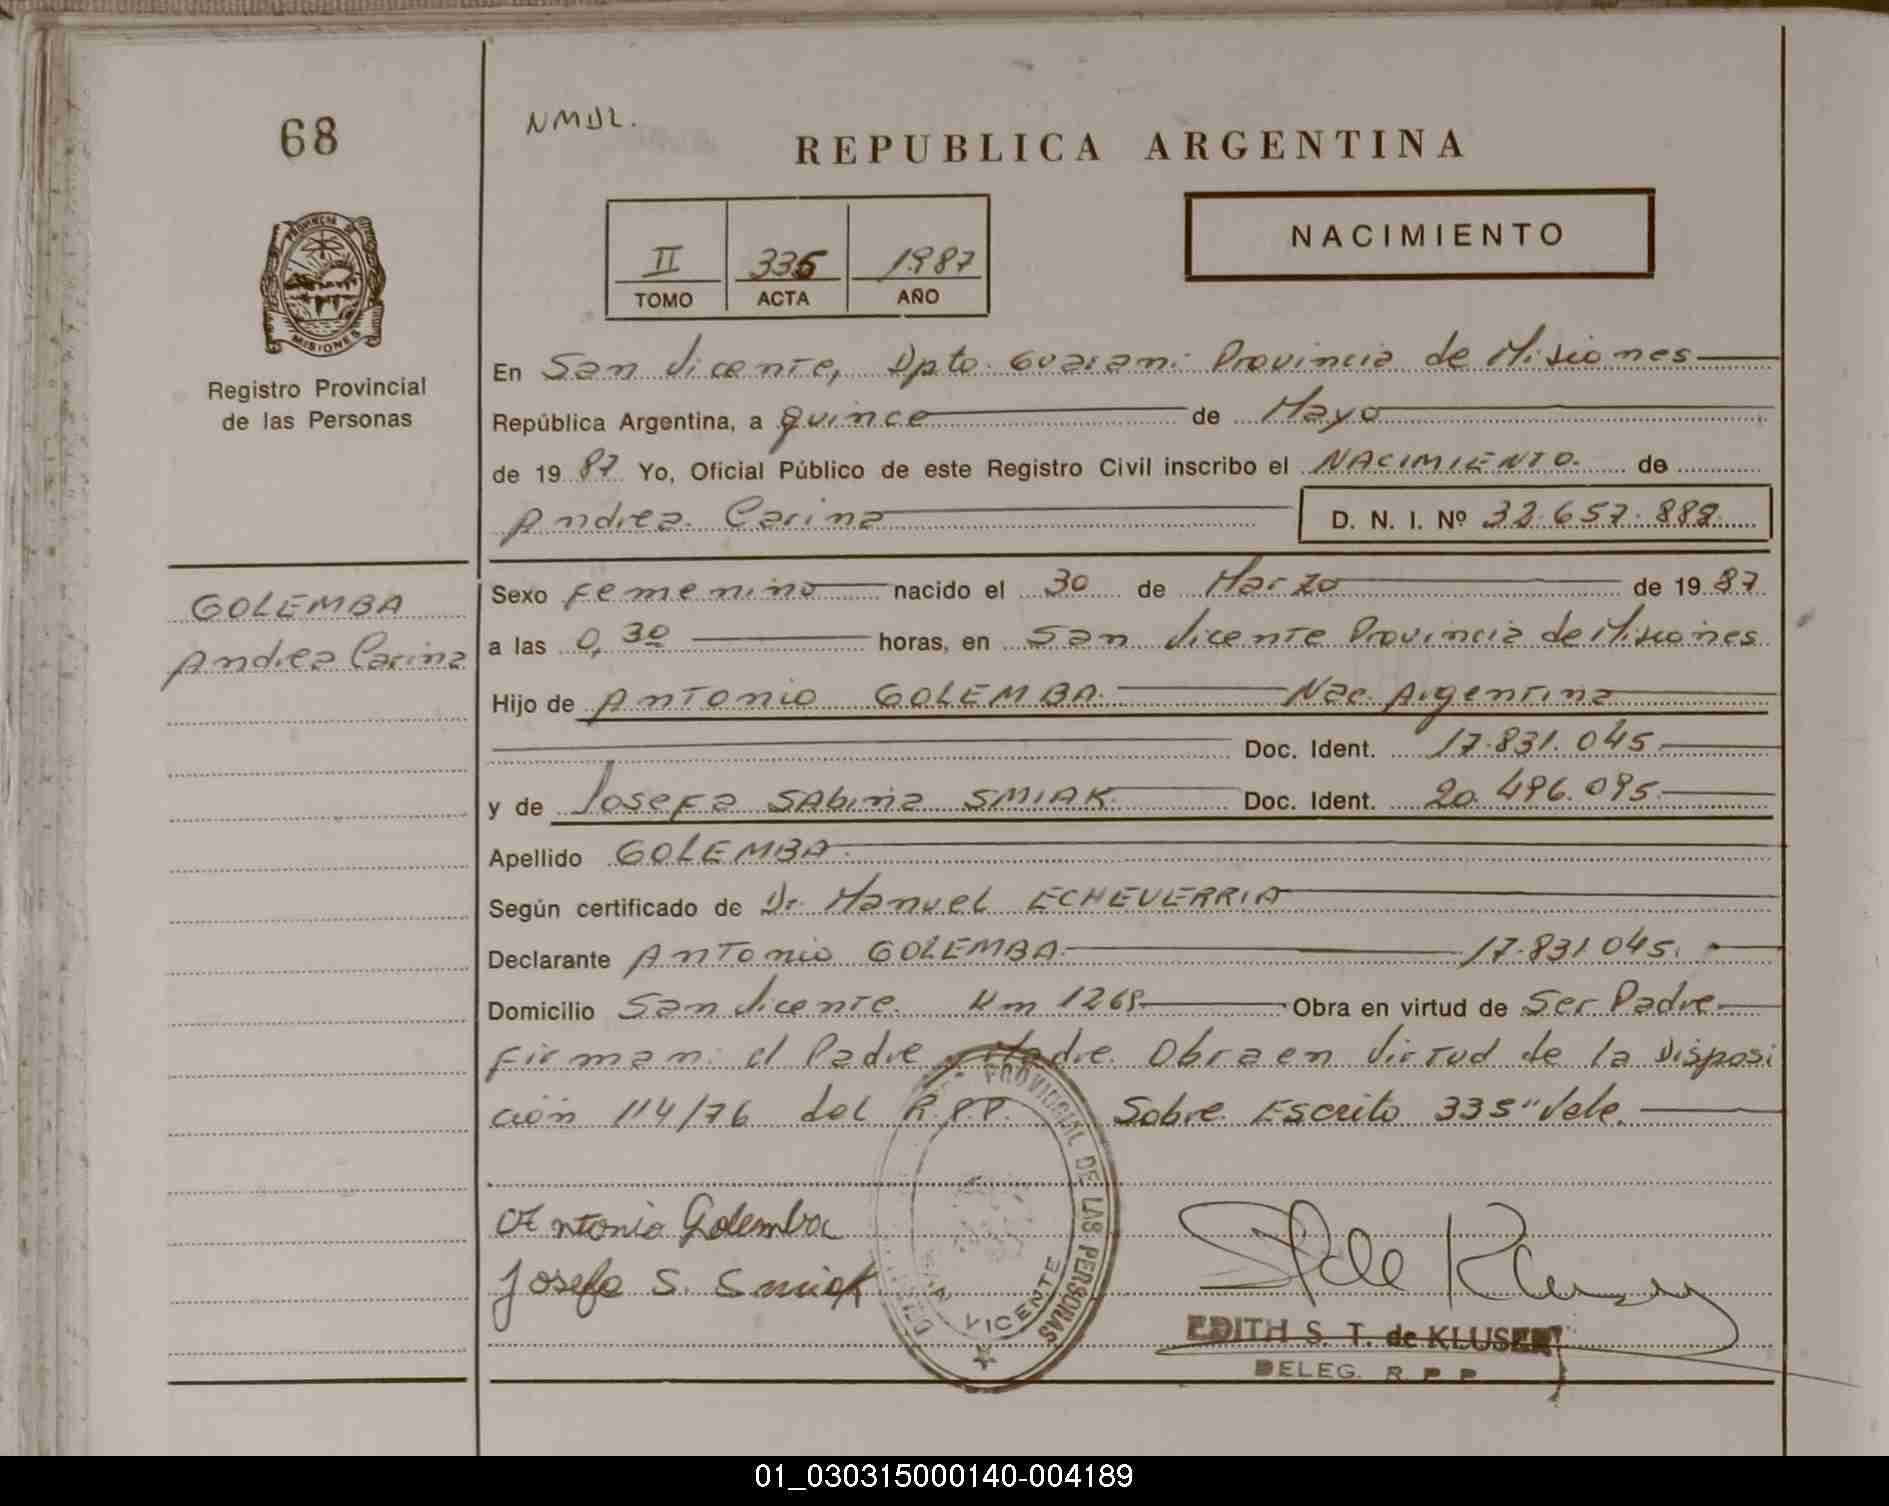 68
NMDL.
REPUBLICA ARGENTINA
PROVINCIA DE
MISIONES
Registro Provincial
de las Personas
II 335 1987
TOMO ACTA AÑO
NACIMIENTO
En San Vicente, Dpto. Guarani Provincia de Misiones
República Argentina, a quince de Mayo
de 1987 Yo, Oficial Público de este Registro Civil inscribo el NACIMIENTO. de
Andrea Carina D. N. I. Nº 32.657.882
GOLEMBA
Andrea Carina
Sexo Femenino nacido el 30 de Marzo de 1987
a las 0,30 horas, en San Vicente Provincia de Misiones
Hijo de ANTONIO GOLEMBA. Nac. Argentina
Doc. Ident. 17.831.045
y de Josefa Sabina SMIAK Doc. Ident. 20.496.095
Apellido GOLEMBA
Según certificado de Dr. Manuel ECHEVERRIA
Declarante ANTONIO GOLEMBA 17.831.045.
Domicilio San Vicente. Km 1269 Obra en virtud de Ser Padre
Firman: el Padre y Madre. Obra en virtud de la Disposi
ción 114/76 del R.P.P. Sobre Escrito 335" Vale.
Antonio Golemba
Josefa S. Smiak
PROVINCIAL DE LAS PERSONAS
SAN VICENTE
S T de Klusen
EDITH S. T. de KLUSEN
DELEG. R. P. P.
01_030315000140-004189